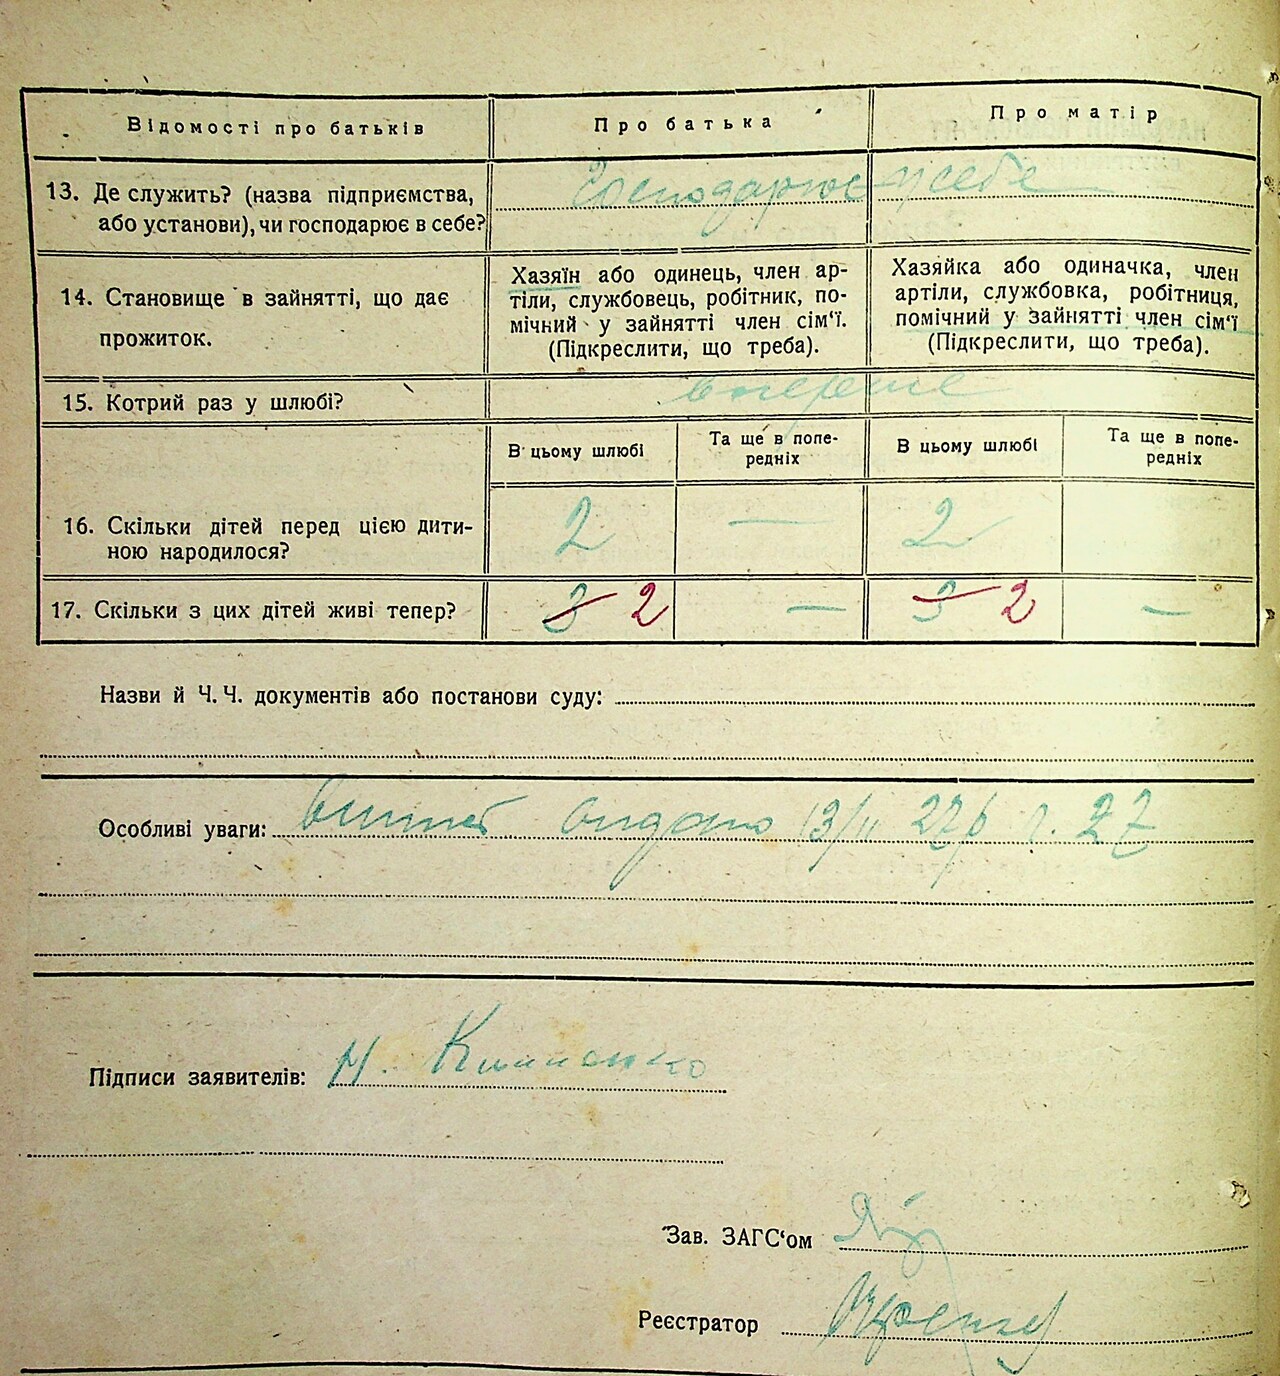 Відомості про батьків
Про батька
Про матір
13. Де служить? (назва підприємства,
або установи), чи господарює в себе?
Господарює у себе
14. Становище в зайнятті, що дає
прожиток.
Хазяїн або одинець, член ар-
тіли, службовець, робітник, по-
мічний у зайнятті член сім‘ї.
(Підкреслити, що треба).
Хазяйка або одиначка, член
артіли, службовка, робітниця,
помічний у зайнятті член сім‘ї
(Підкреслити, що треба).
15. Котрий раз у шлюбі?
вперше
В цьому шлюбі
Та ще в попе-
редніх
В цьому шлюбі
Та ще в попе-
редніх
16. Скільки дітей перед цією дити-
ною народилося?
2 — 2
17. Скільки з цих дітей живі тепер?
3 2 — 3 2 —
Назви й Ч. Ч. документів або постанови суду:
Особливі уваги: видано 13/II 27 р. 27
Підписи заявителів:
Зав. ЗАГС‘ом
Реєстратор